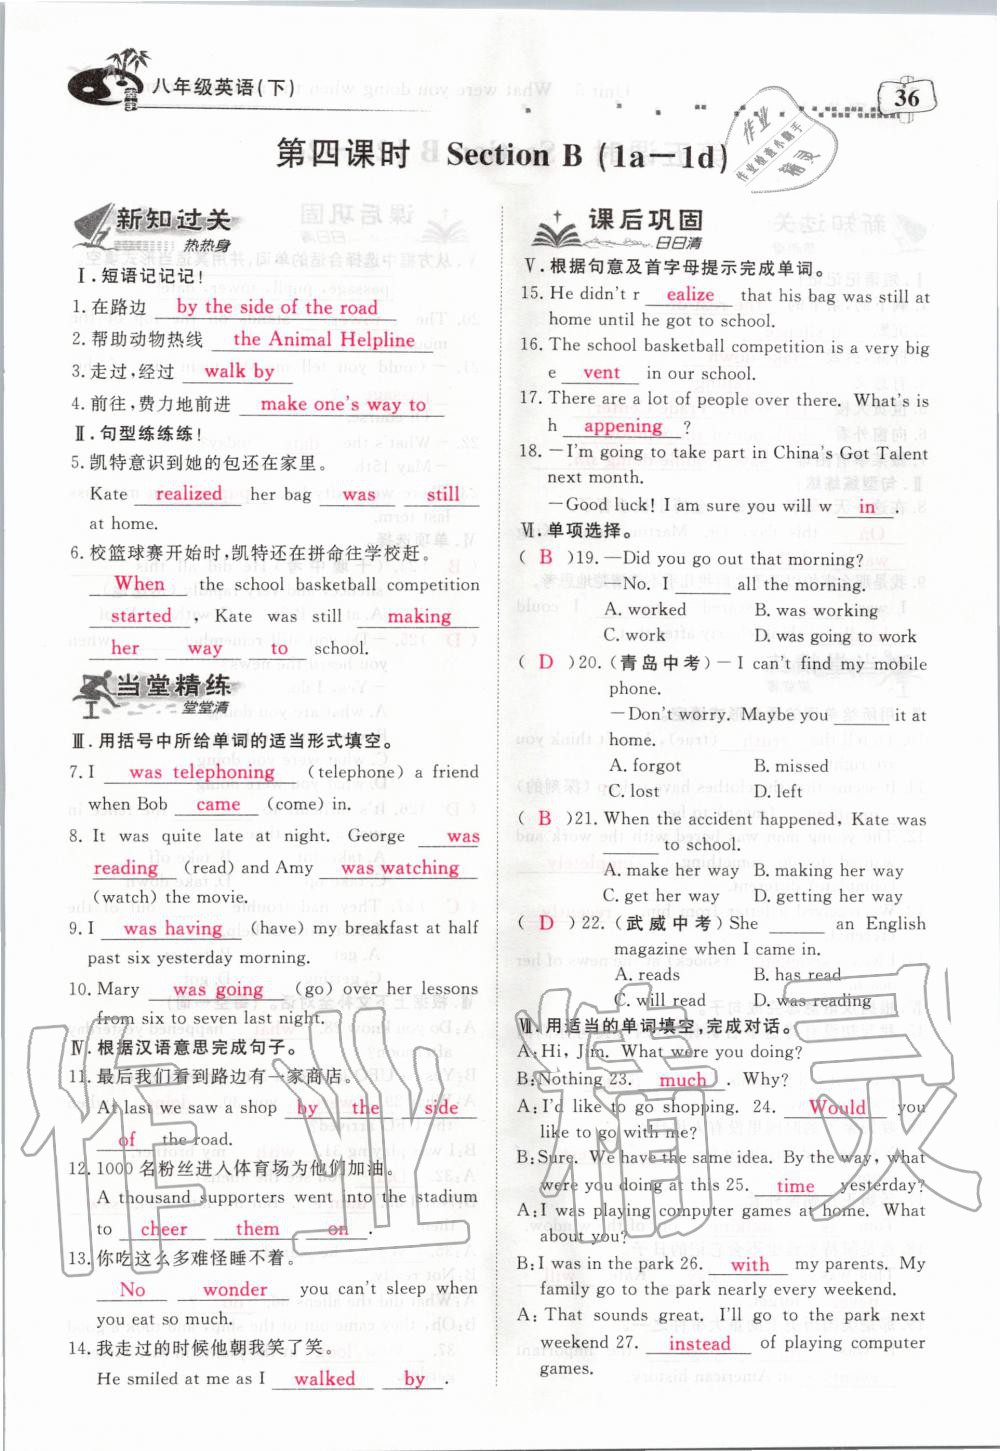 八年级英语(下)
36
第四课时 Section B (1a—1d)
新知过关
热热身
Ⅰ.短语记记记!
1.在路边 by the side of the road
2.帮助动物热线 the Animal Helpline
3.走过,经过 walk by
4.前往,费力地前进 make one's way to
Ⅱ.句型练练练!
5.凯特意识到她的包还在家里。
Kate realized her bag was still
at home.
6.校篮球赛开始时,凯特还在拼命往学校赶。
When the school basketball competition
started , Kate was still making
her way to school.
当堂精练
堂堂清
Ⅲ.用括号中所给单词的适当形式填空。
7.I was telephoning (telephone) a friend
when Bob came (come) in.
8. It was quite late at night. George was
reading (read) and Amy was watching
(watch) the movie.
9.I was having (have) my breakfast at half
past six yesterday morning.
10. Mary was going (go) over her lessons
from six to seven last night.
Ⅳ.根据汉语意思完成句子。
11.最后我们看到路边有一家商店。
At last we saw a shop by the side
of the road.
12.1000名粉丝进入体育场为他们加油。
A thousand supporters went into the stadium
to cheer them on .
13.你吃这么多难怪睡不着。
No wonder you can't sleep when
you eat so much.
14.我走过的时候他朝我笑了笑。
He smiled at me as I walked by .
课后巩固
日日清
Ⅴ.根据句意及首字母提示完成单词。
15. He didn't r ealize that his bag was still at
home until he got to school.
16. The school basketball competition is a very big
e vent in our school.
17. There are a lot of people over there. What's is
h appening ?
18. —I'm going to take part in China's Got Talent
next month.
—Good luck! I am sure you will w in .
Ⅵ.单项选择。
( B )19. —Did you go out that morning?
—No. I ______ all the morning.
A. worked B. was working
C. work D. was going to work
( D )20.(青岛中考)—I can't find my mobile
phone.
—Don't worry. Maybe you ______ it at
home.
A. forgot B. missed
C. lost D. left
( B )21. When the accident happened, Kate was
______ to school.
A. make her way B. making her way
C. get her way D. getting her way
( D )22.(武威中考)She ______ an English
magazine when I came in.
A. reads B. has read
C. will read D. was reading
Ⅶ.用适当的单词填空,完成对话。
A: Hi, Jim. What were you doing?
B: Nothing 23. much . Why?
A: I'd like to go shopping. 24. Would you
like to go with me?
B: Sure. We have the same idea. By the way, what
were you doing at this 25. time yesterday?
A: I was playing computer games at home. What
about you?
B: I was in the park 26. with my parents. My
family go to the park nearly every weekend.
A: That sounds great. I'll go to the park next
weekend 27. instead of playing computer
games.
作业精灵
作业
作业检查小助手
精灵